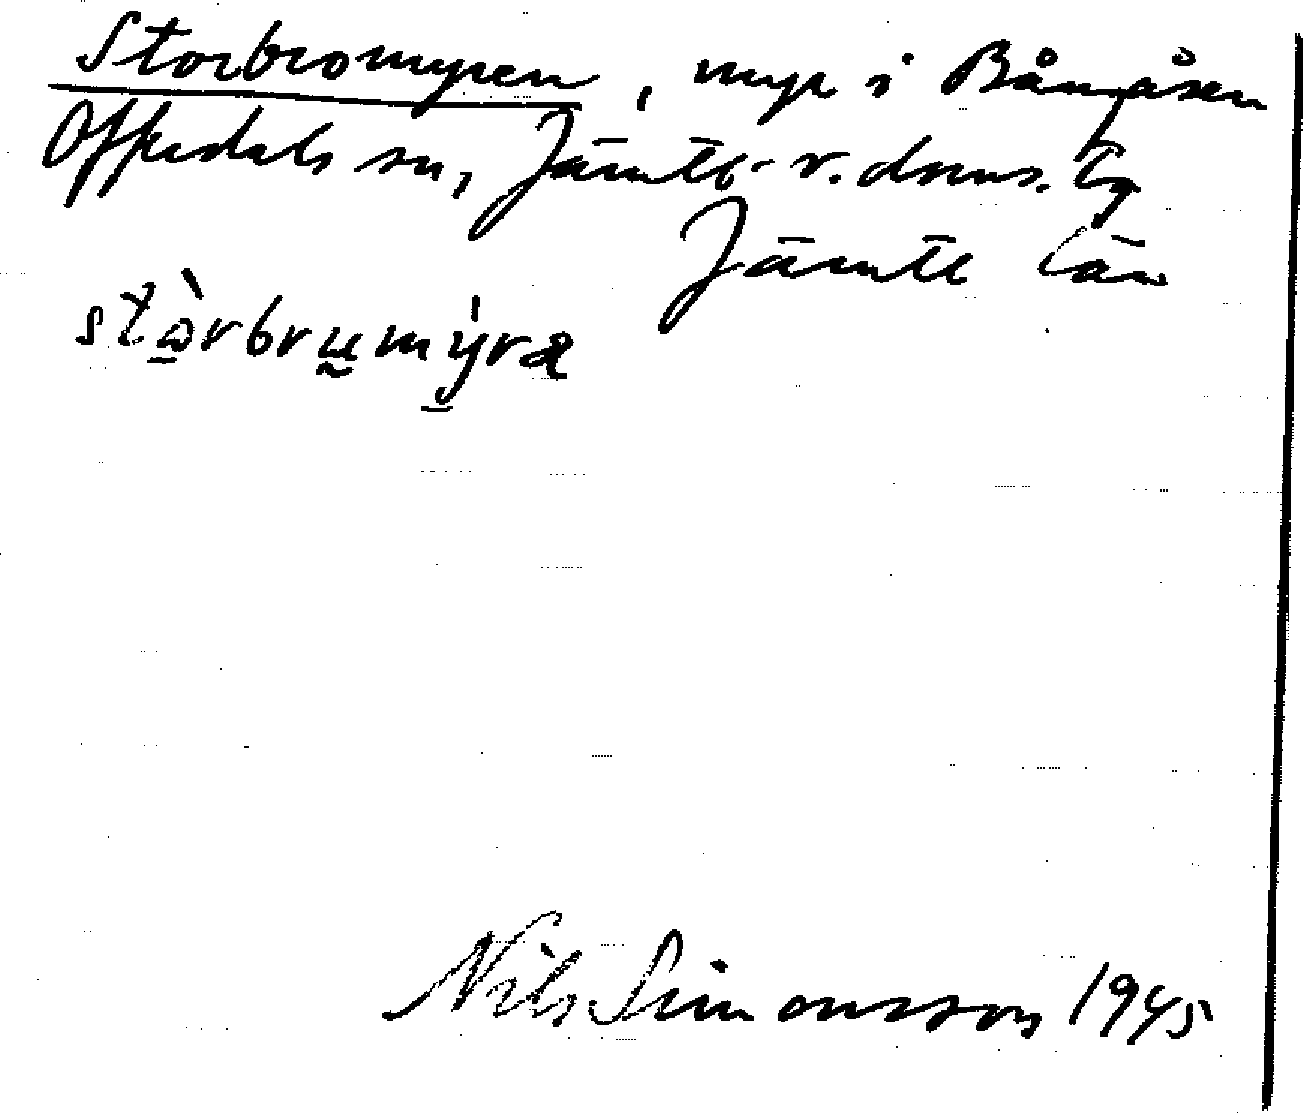 Storbromyren, myr i Bångåsen
Offerdals sn, Jämtl. v. doms. tg
Jämtl län
stòrbrumýræ
Nils Simonsson 1945